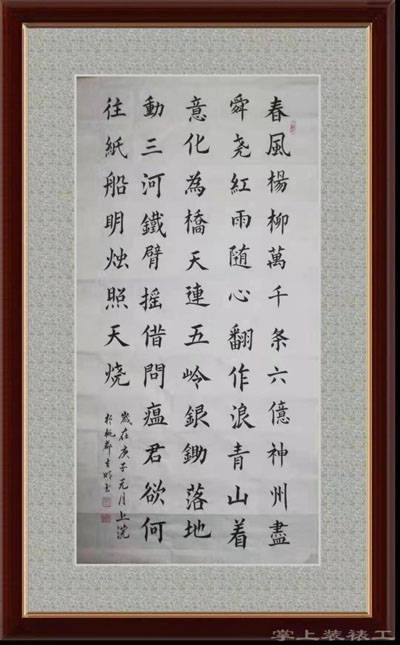 春風楊柳萬千条六億神州盡
舜尧紅雨隨心翻作浪青山着
意化為橋天連五岭銀鋤落地
動三河鐵臂摇借問瘟君欲何
往紙船明烛照天烧
歲在庚子元月上浣
掌上装裱工